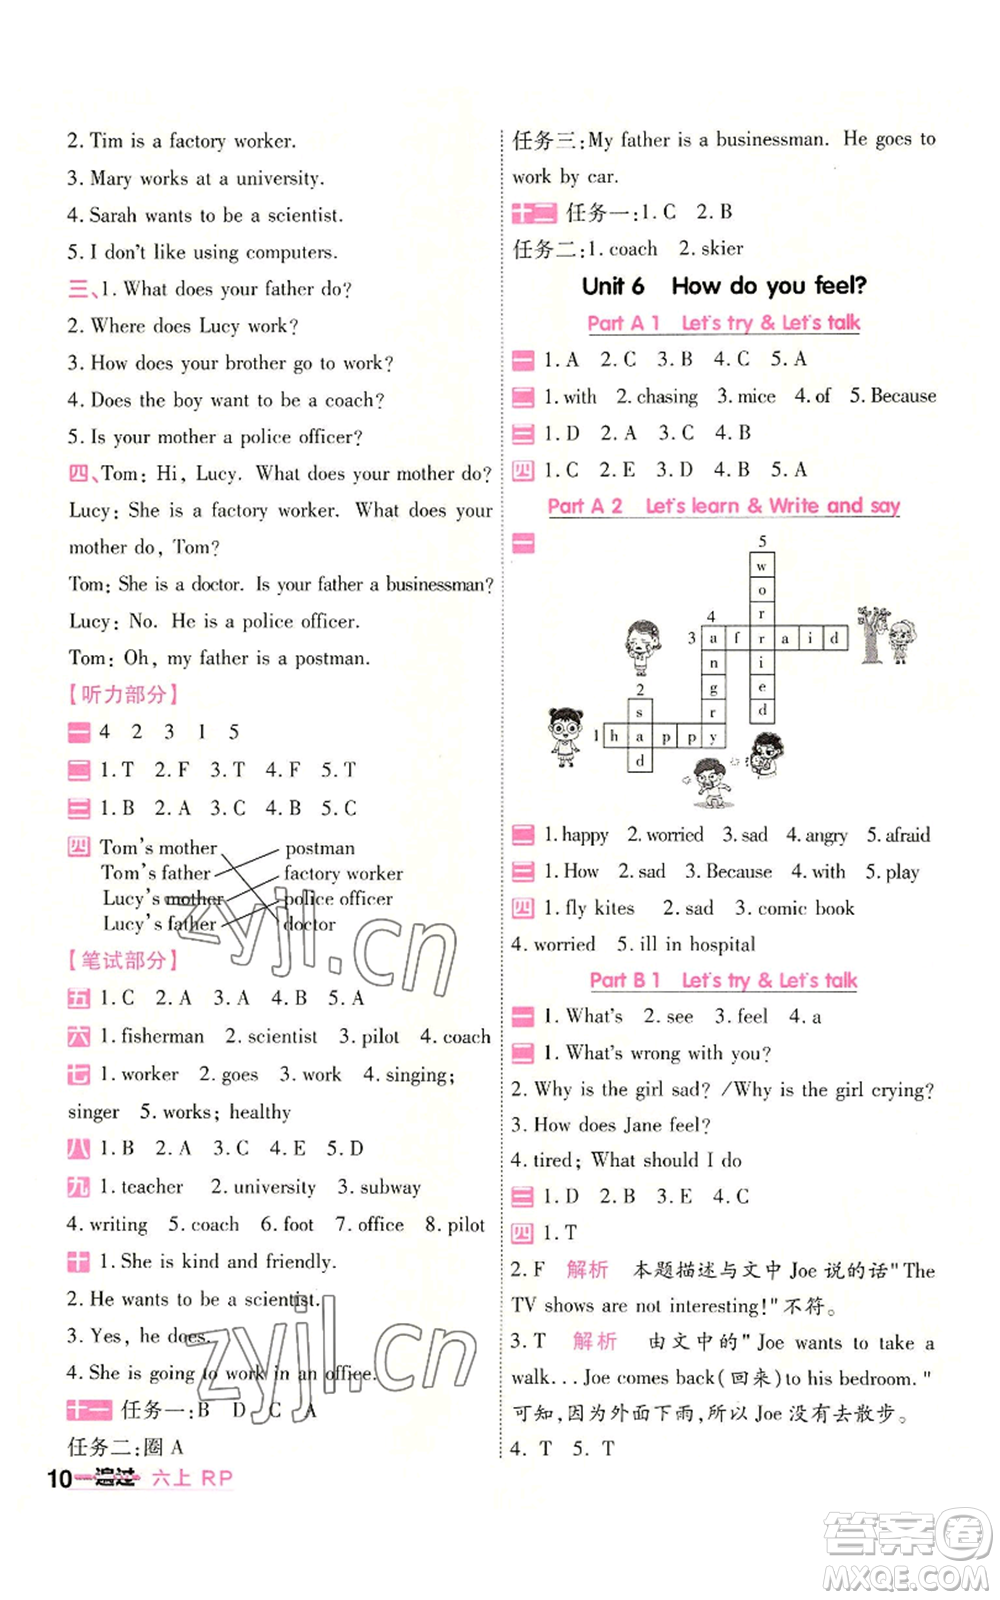 2. Tim is a factory worker.
3. Mary works at a university.
4. Sarah wants to be a scientist.
5. I don't like using computers.
三、1. What does your father do?
2. Where does Lucy work?
3. How does your brother go to work?
4. Does the boy want to be a coach?
5. Is your mother a police officer?
四、Tom: Hi, Lucy. What does your mother do?
Lucy: She is a factory worker. What does your
mother do, Tom?
Tom: She is a doctor. Is your father a businessman?
Lucy: No. He is a police officer.
Tom: Oh, my father is a postman.
【听力部分】
一 4 2 3 1 5
二 1. T 2. F 3. T 4. F 5. T
三 1. B 2. A 3. C 4. B 5. C
四 Tom's mother postman
Tom's father factory worker
Lucy's mother police officer
Lucy's father doctor
【笔试部分】
五 1. C 2. A 3. A 4. B 5. A
六 1. fisherman 2. scientist 3. pilot 4. coach
七 1. worker 2. goes 3. work 4. singing;
singer 5. works; healthy
八 1. B 2. A 3. C 4. E 5. D
九 1. teacher 2. university 3. subway
4. writing 5. coach 6. foot 7. office 8. pilot
十 1. She is kind and friendly.
2. He wants to be a scientist.
3. Yes, he does.
4. She is going to work in an office.
十一 任务一:B D C A
任务二:圈 A
10 一遍过 六上 RP
任务三:My father is a businessman. He goes to
work by car.
十二 任务一:1. C 2. B
任务二:1. coach 2. skier
Unit 6 How do you feel?
Part A 1 Let's try & Let's talk
一 1. A 2. C 3. B 4. C 5. A
二 1. with 2. chasing 3. mice 4. of 5. Because
三 1. D 2. A 3. C 4. B
四 1. C 2. E 3. D 4. B 5. A
Part A 2 Let's learn & Write and say
一
5
w
o
4 r
3 a f r a i d
n i
2 g e
s r d
1 h a p p y
d
二 1. happy 2. worried 3. sad 4. angry 5. afraid
三 1. How 2. sad 3. Because 4. with 5. play
四 1. fly kites 2. sad 3. comic book
4. worried 5. ill in hospital
Part B 1 Let's try & Let's talk
一 1. What's 2. see 3. feel 4. a
二 1. What's wrong with you?
2. Why is the girl sad? /Why is the girl crying?
3. How does Jane feel?
4. tired; What should I do
三 1. D 2. B 3. E 4. A 4. C
四 1. T
2. F 解析 本题描述与文中 Joe 说的话"The
TV shows are not interesting!"不符。
3. T 解析 由文中的"Joe wants to take a
walk...Joe comes back(回来)to his bedroom."
可知,因为外面下雨,所以 Joe 没有去散步。
4. T 5. T
zyjl.cn
zyjl.cn
答案圈
MXQE.COM